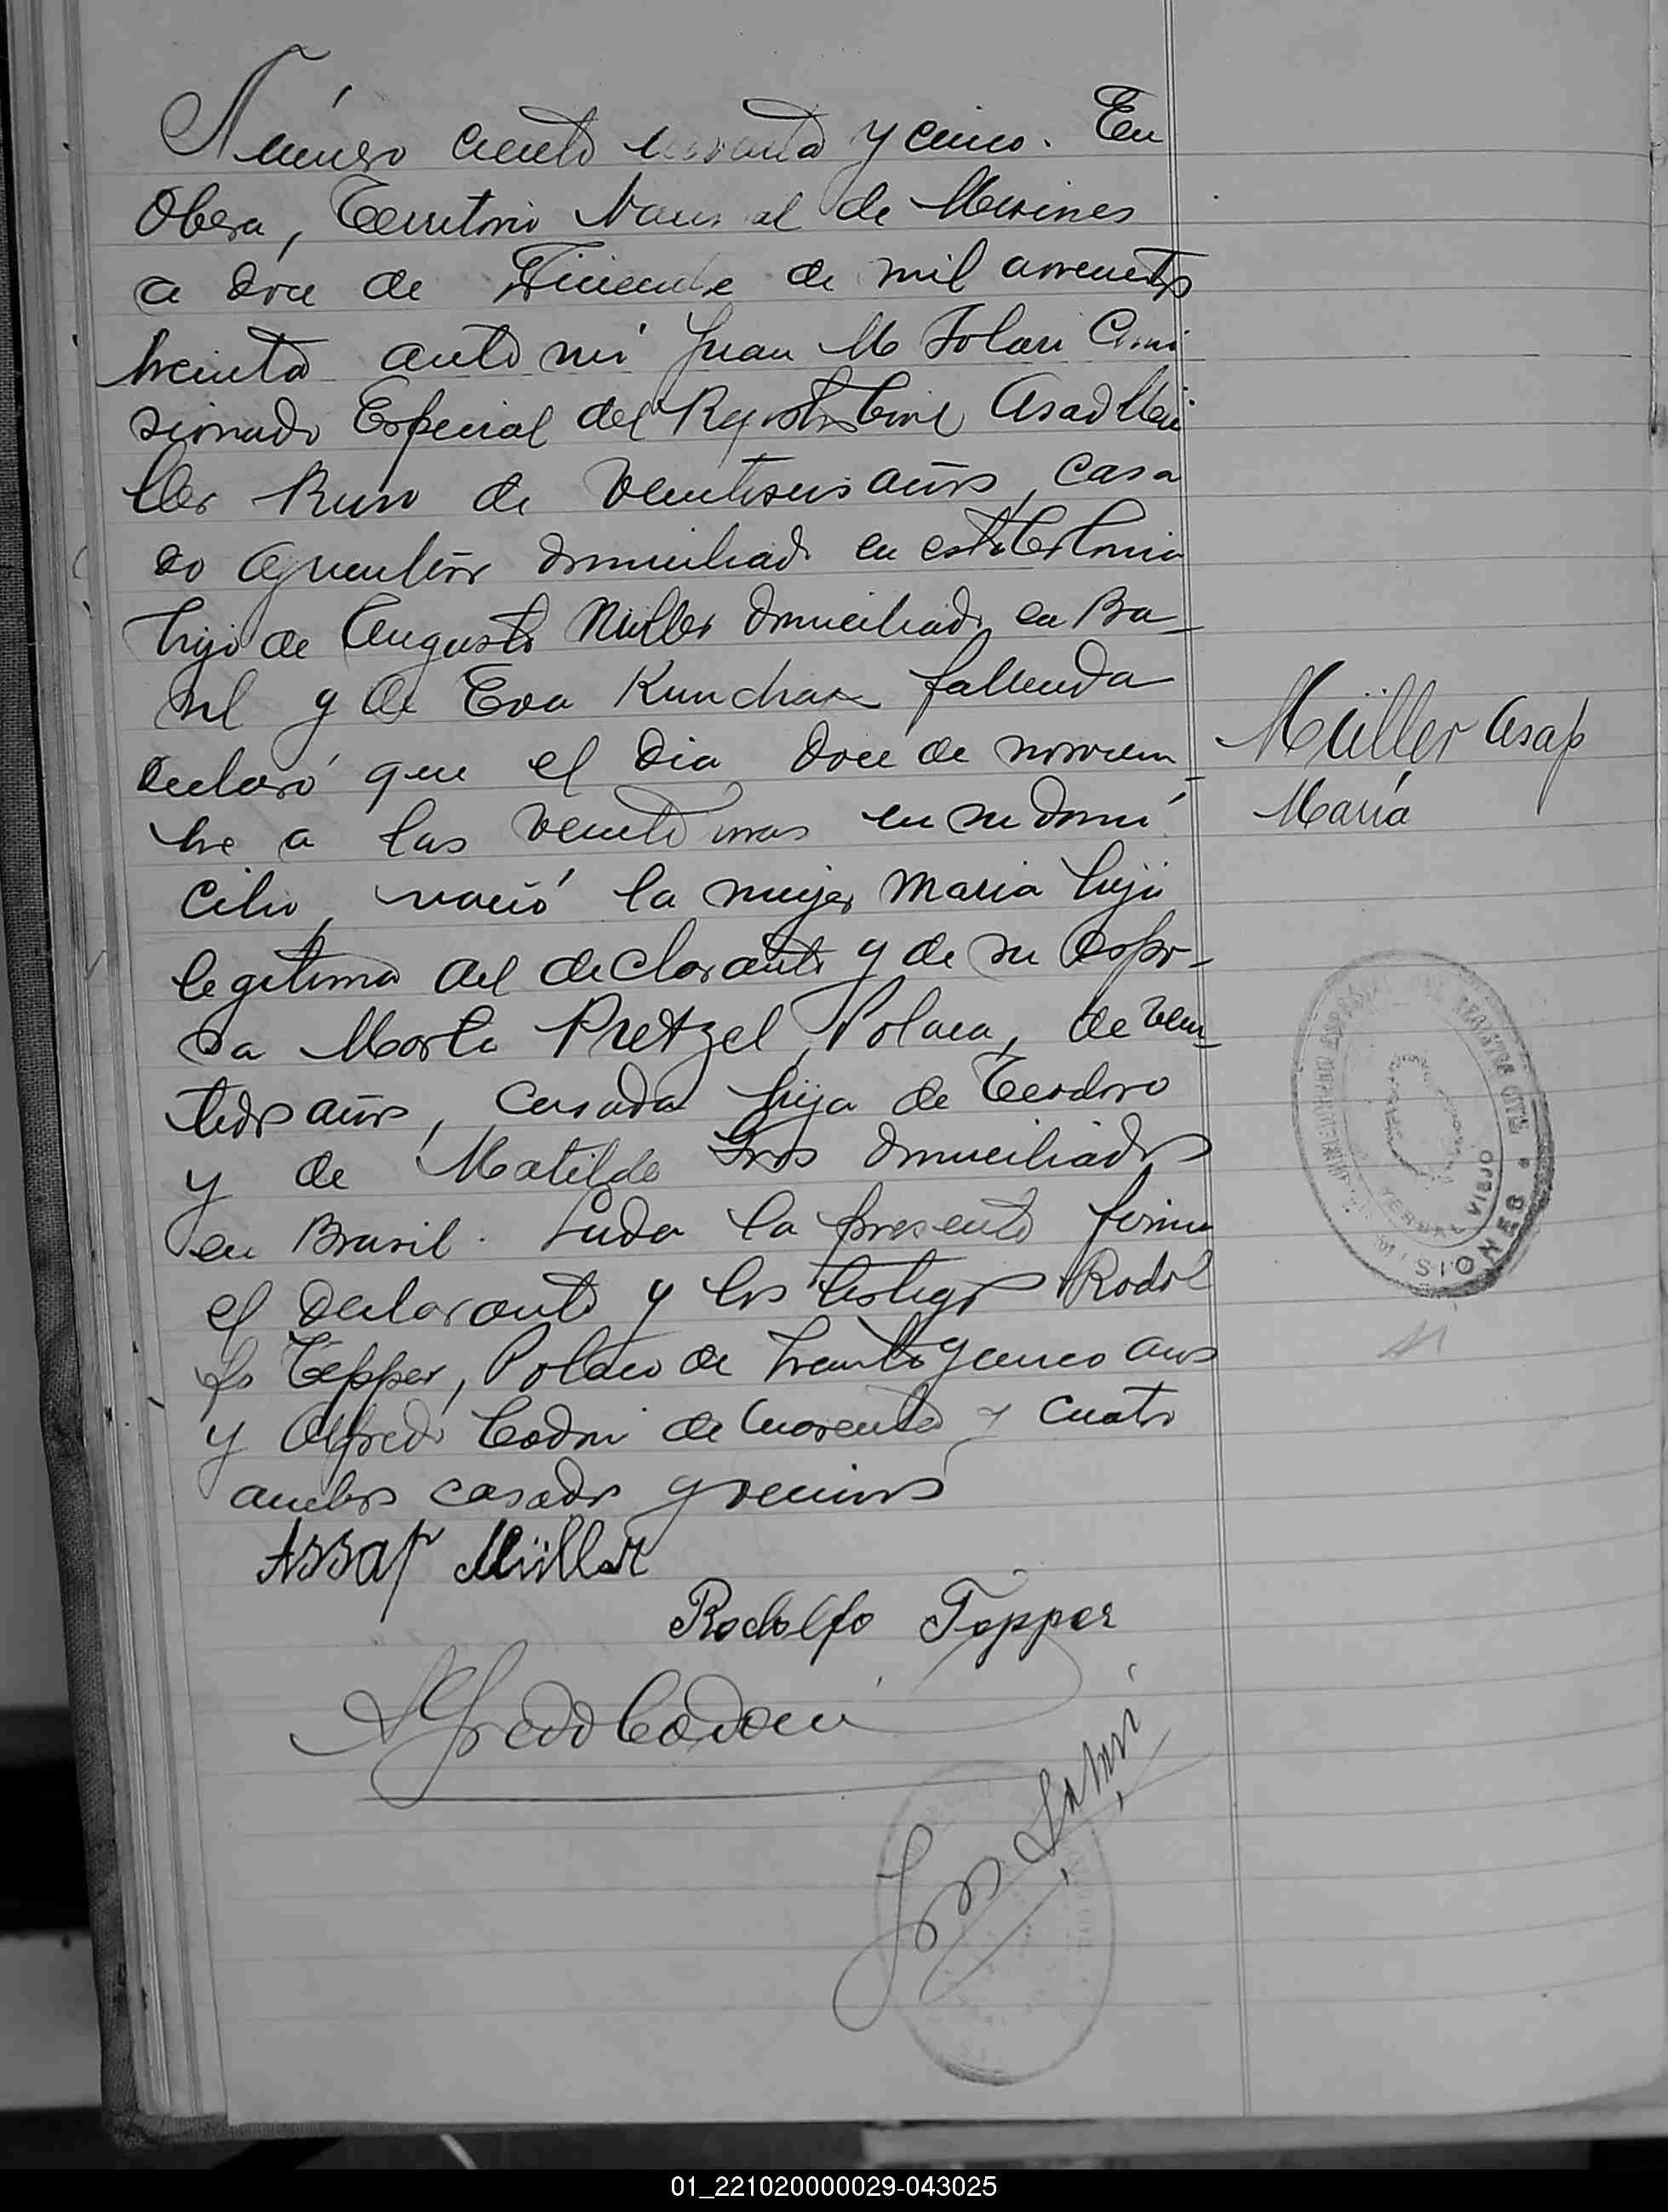 Número ciento noventa y cinco. En
Obera, Territorio Nacional de Misiones
a doce de Diciembre de mil novecientos
treinta ante mi Juan M Solari Comi
sionado Especial del Registro Civil Asad Mü
ller Ruso de veintiseis años, casa
do agricultor domiciliado en esta Colonia
hijo de Augusto Müller domiciliado en Bra-
sil y de Eva Kunchax fallecida
declaró que el dia doce de noviem-
bre a las veinte horas en su domi
cilio, nació la mujer Maria hija
legitima del declarante y de su espo-
sa Marta Pretzel, Polaca, de vein-
tidos años, casada hija de Teodoro
y de Matilde Gros domiciliados
en Brasil. Leida la presente firma
el declarante y los testigos Rodol
fo Tepper, Polaco de treinta y cinco años
y Alfredo Codoni de cuarenta y cuatro
ambos casados y vecinos
Assaf Müller
Rodolfo Tepper
Alfredo Codoni
Müller Asaf
María
COMISIONADO ESPECIAL DEL REGISTRO CIVIL
YERBAL VIEJO
MISIONES
01_221020000029-043025